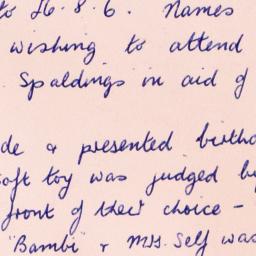 to £6.8.6. Names
wishing to attend
Spaldings in aid of
de a presented birthd
oft toy was judged by
front of their choice –
"Bambi" & Mrs. Self was